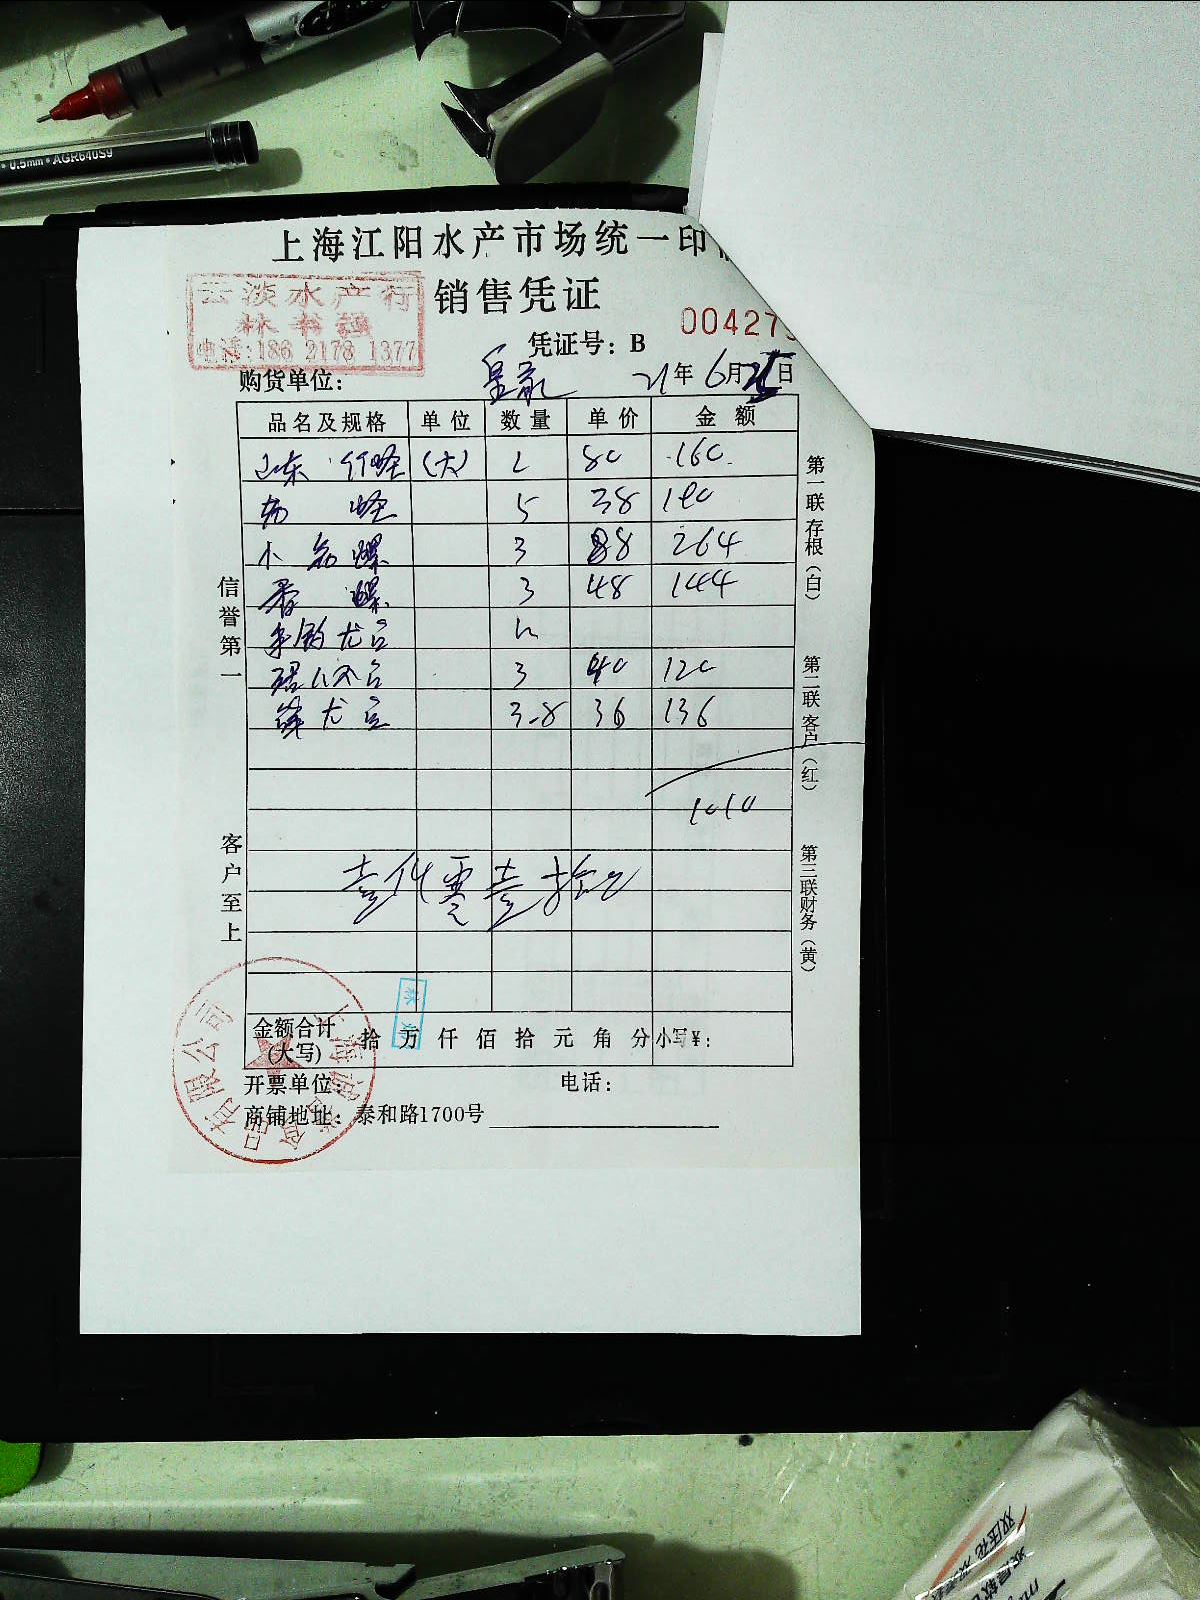 0.5mm • AGR640S9
上海江阳水产市场统一印
云淡水产行
销售凭证
电话:186 2178 1377
00427
凭证号: B
购货单位: 21年 6月 日
品名及规格 单位 数量 单价 金额
山东 竹蛏 (大) 2 80 160
蛏 5 38 190
小 螺 3 88 264
香 螺 3 48 144
3 40 120
3.8 36 136
1010
壹仟零壹拾元
信誉第一
客户至上
第一联存根(白)
第二联客户(红)
第三联财务(黄)
金额合计(大写) 拾 万 仟 佰 拾 元 角 分 小写¥:
开票单位: 电话:
商铺地址: 泰和路1700号
有限公司
双压花